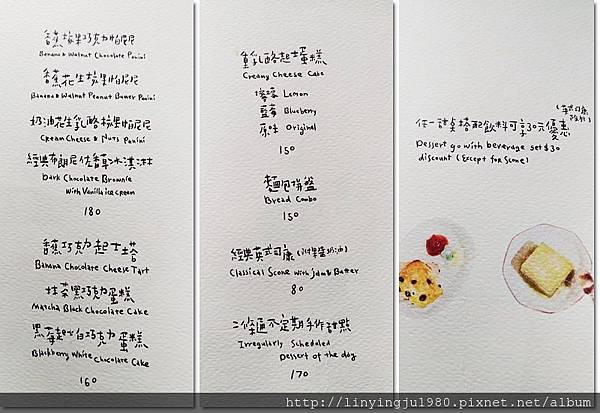 香蕉核果巧克力帕尼尼
Banana & Walnut Chocolate Panini
香蕉花生核果帕尼尼
Banana & Walnut Peanut Butter Panini
奶油花生乳酪核果帕尼尼
Cream Cheese & Nuts Panini
經典布朗尼佐香草冰淇淋
Dark Chocolate Brownie
With Vanilla ice cream
180
香蕉巧克力起士塔
Banana Chocolate Cheese Tart
抹茶黑巧克力蛋糕
Matcha Black Chocolate Cake
黑莓白巧克力蛋糕
Blackberry White Chocolate Cake
160
重乳酪起士蛋糕
Creamy Cheese Cake
檸檬 Lemon
藍莓 Blueberry
原味 Original
150
麵包拼盤
Bread Combo
150
經典英式司康(附果醬奶油)
Classical Scone with jam & Butter
80
二條通不定期手作甜點
Irregularly Scheduled
Dessert of the day
170
(英式司康除外)
任一甜桌搭配飲料可享30元優惠
Dessert go with beverage set $30
discount (Except for Scone)
http://linyingju1980.pixnet.net/album